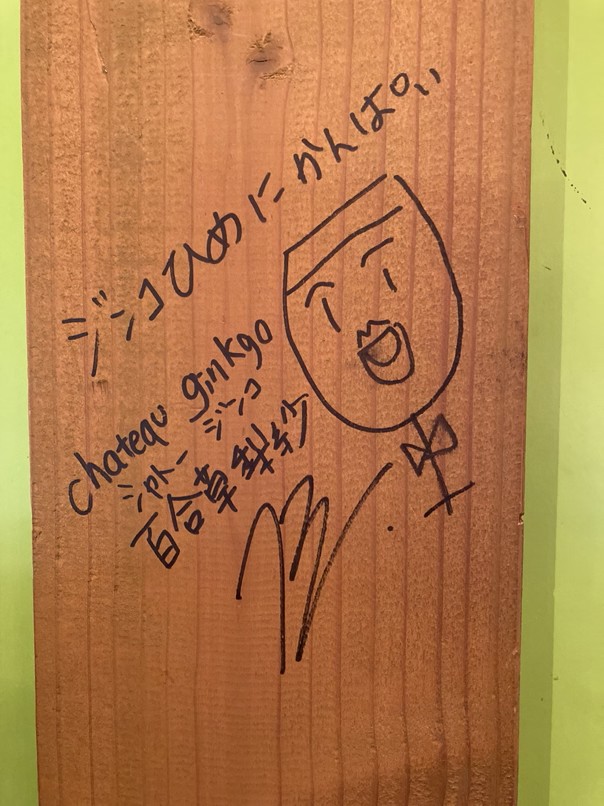 ジンコひめにかんぱい
chateau ginkgo
シャトー ジンコ
百合草梨紗